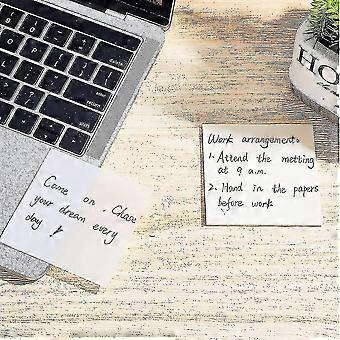 Come on, Chase
your dream every
day !
Work arrangements
1. Attend the metting
at 9 a.m.
2. Hand in the papers
before work
HO